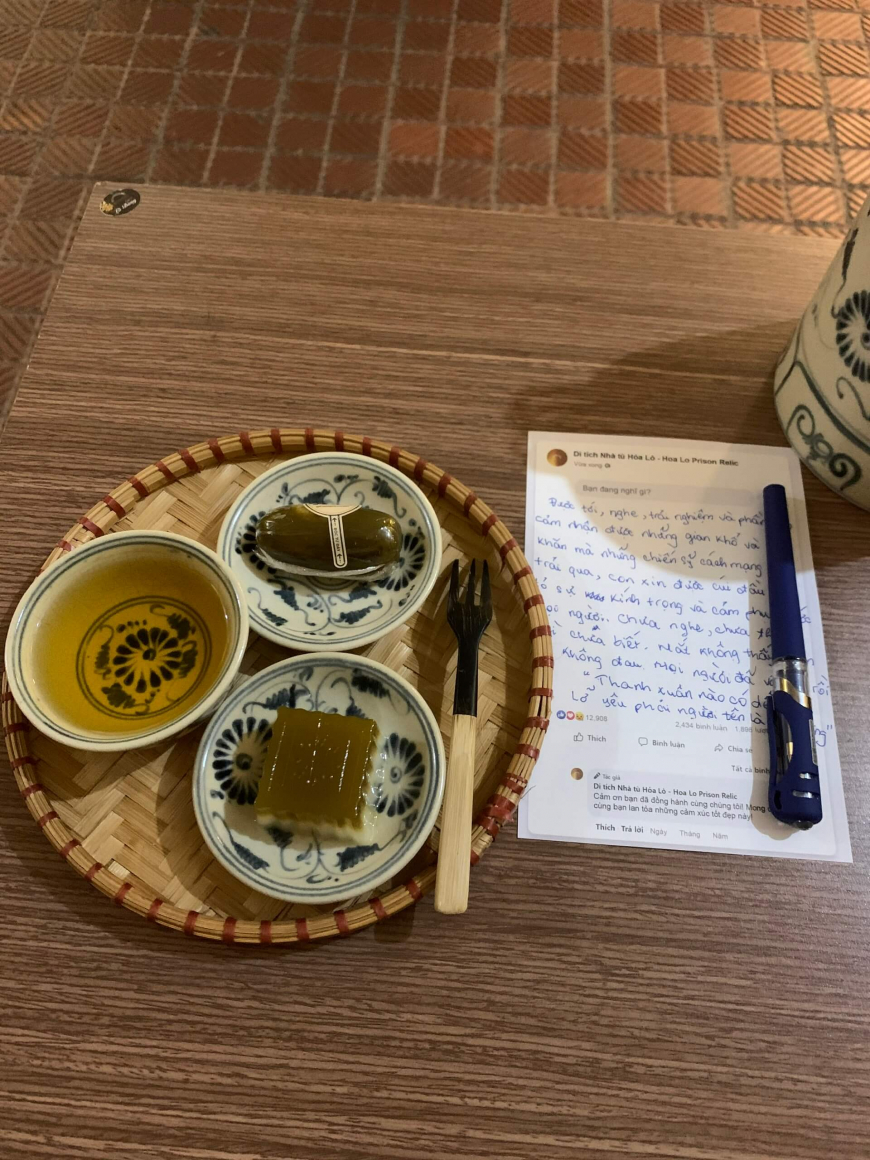 Di tích Nhà tù Hỏa Lò - Hoa Lo Prison Relic
Vừa xong
Bạn đang nghĩ gì?
Được tới, nghe, trải nghiệm và phần
cảm nhận được những gian khổ và
khăn mà những chiến sỹ cách mạng
trải qua, con xin được cúi đầu
tỏ sự kính trọng và cảm phục
mọi người.. chưa nghe, chưa
chưa biết. Mắt không thấy
không đau. Mọi người đã rồi
"Thanh xuân nào có
Lỡ yêu phải người tên là
12,908
2,434 bình luận
Thích
Bình luận
Chia sẻ
Tất cả bình
Tác giả
Di tích Nhà tù Hỏa Lò - Hoa Lo Prison Relic
Cảm ơn bạn đã đồng hành cùng chúng tôi! Mong
cùng bạn lan tỏa những cảm xúc tốt đẹp này!
Thích Trả lời Ngày Tháng Năm